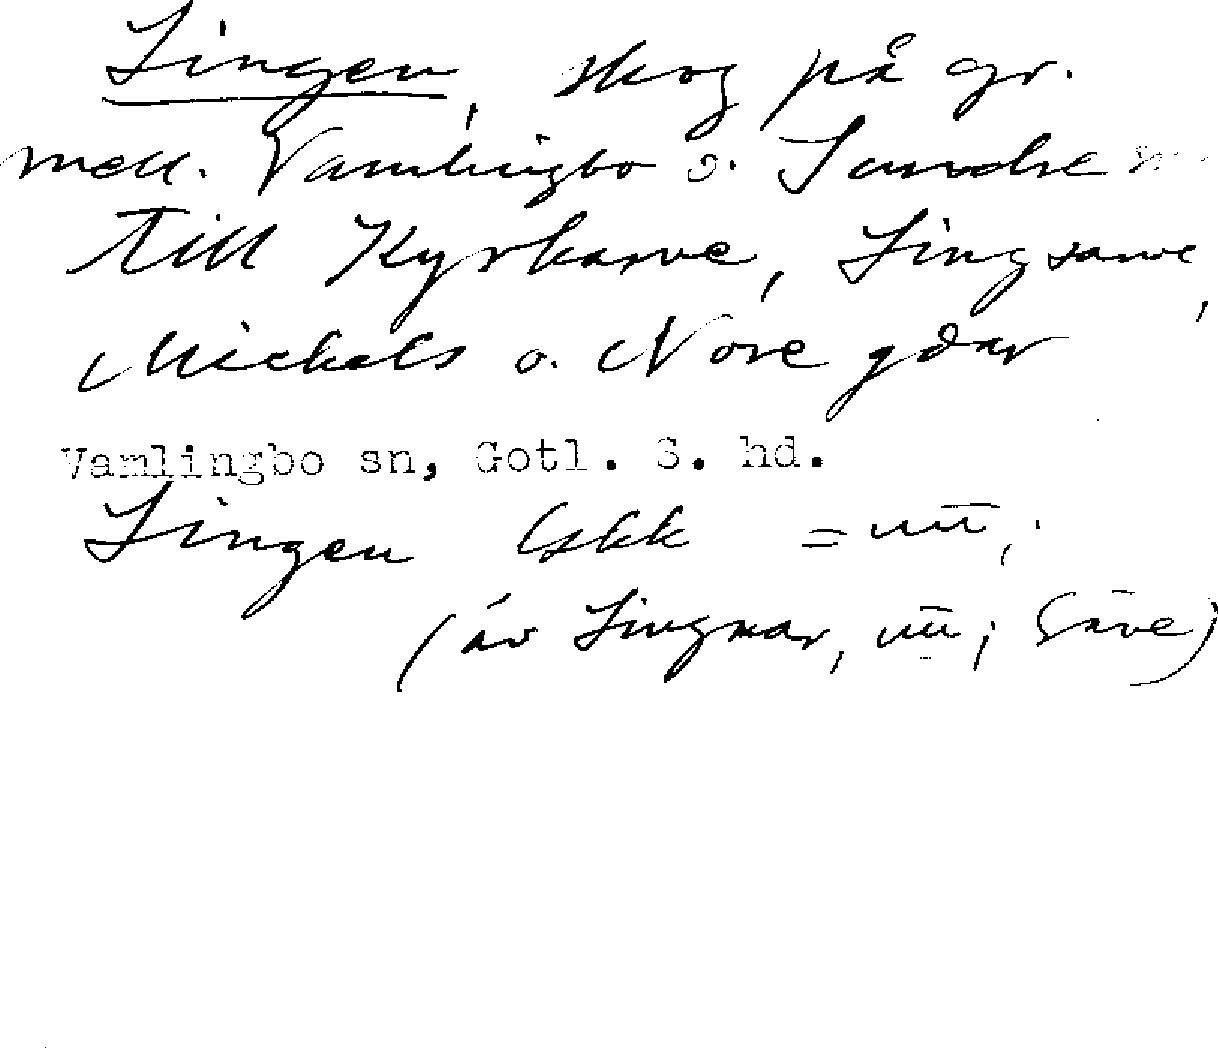 Lingen, skog på gr.
mell. Vamlingbo o. Sundre
till Kyrkarve, Lingsarve,
Mickels o. Nore gdar
Vamlingbo sn, Gotl. S. hd.
Lingen Gskk =
(äv Lingnar, Säve)